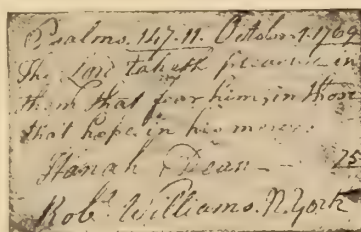 Psalms. 147.11. October 1. 1769
The Lord taketh pleasure in
them that fear him, in those
that hope in his mercy.
Hanah Dean - 25
Rob.t Williams. N. York